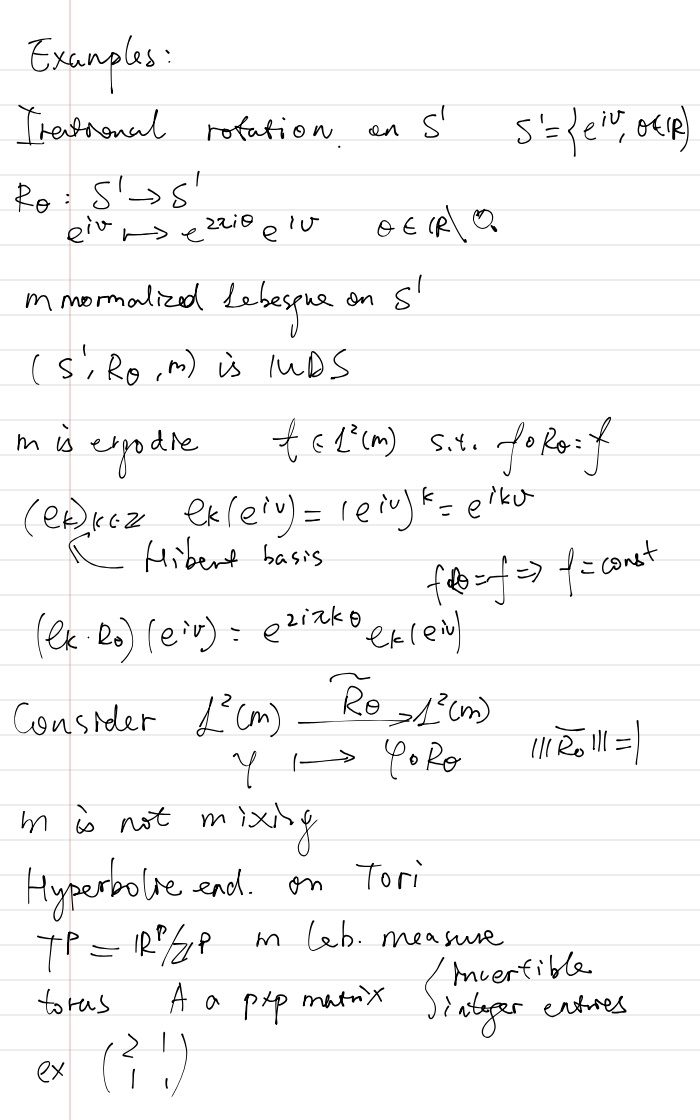 Examples:
Irrational rotation on S¹ S¹={e^{iv}, θ∈ℝ}
R_θ : S¹ → S¹
e^{iv} ↦ e^{2πiθ} e^{iv} θ ∈ ℝ\ℚ
m normalized Lebesgue on S¹
(S¹, R_θ, m) is IMDS
m is ergodic f ∈ L²(m) s.t. f∘R_θ = f
(e_k)_{k∈ℤ} e_k(e^{iv}) = (e^{iv})^k = e^{ikv}
Hilbert basis
f∘R_θ = f ⇒ f = const
(e_k · R_θ)(e^{iv}) = e^{2iπkθ} e_k(e^{iv})
Consider L²(m) —R̃_θ→ L²(m)
φ ↦ φ∘R_θ |||R̃_θ||| = 1
m is not mixing
Hyperbolic end. on Tori
T^p = ℝ^p/ℤ^p m leb. measure
torus A a p×p matrix { invertible
integer entries
ex (2 1
1 1)